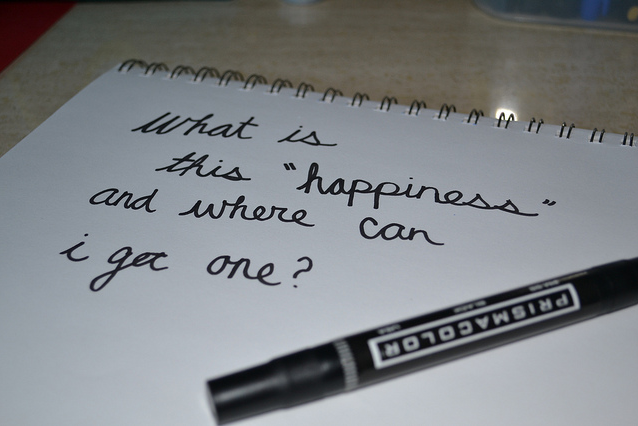 What is
this "happiness"
and where can
i get one?
PRISMACOLOR